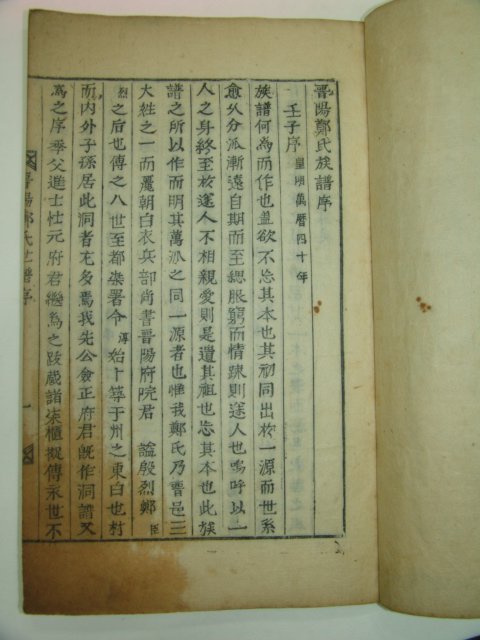 晋陽鄭氏族譜序
壬子序 皇明萬曆四十年
族譜何爲而作也盖欲不忘其本也其初同出於一源而世系
愈久分派漸遠自期而至緦服窮而情踈則途人也嗚呼以一
人之身終至於途人不相親愛則是遺其祖也忘其本也此族
譜之所以作而明其萬派之同一源者也惟我鄭氏乃晋邑三
大姓之一而麗朝白衣兵部尚書晋陽府院君 謚殷烈鄭 臣
烈 之后也傳之八世至都染署令 淳 始卜築于州之東白也村
而內外子孫居此洞者尤多焉我先公僉正府君旣作洞譜又
爲之序季父進士仕元府君繼爲之跋蔵諸柒櫃擬傳永世不
晋陽鄭氏世譜序
一